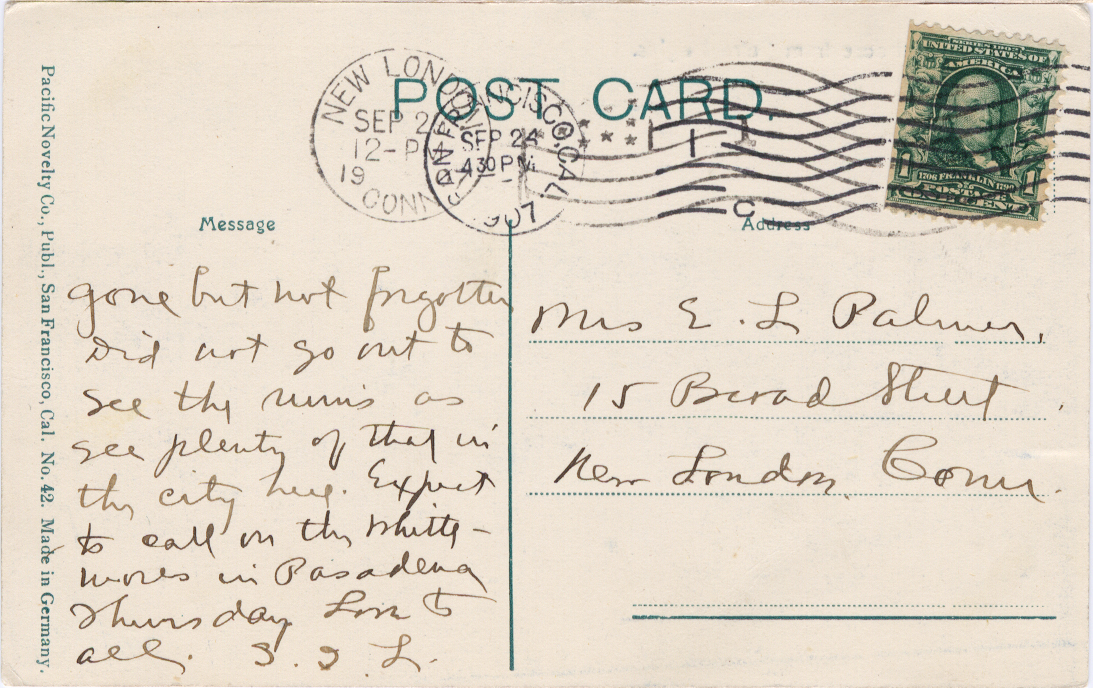 POST CARD.
NEW LONDON
SEP 2
12-PM
19
CONN
SAN FRANCISCO, CAL.
SEP 24
4 30 PM
1907
SERIES 1902
UNITED STATES OF
AMERICA
1706 FRANKLIN 1790
POSTAGE
ONE CENT
1 1
C
Message
Address
gone but not forgotten
Did not go out to
see the ruins as
see plenty of that in
the city here. Expect
to call on the Whitte-
mores in Pasadena
Thursday Love to
all. S. L.
Mrs E. L Palmer,
15 Broad Street
New London. Conn.
Pacific Novelty Co., Publ., San Francisco, Cal. No. 42. Made in Germany.